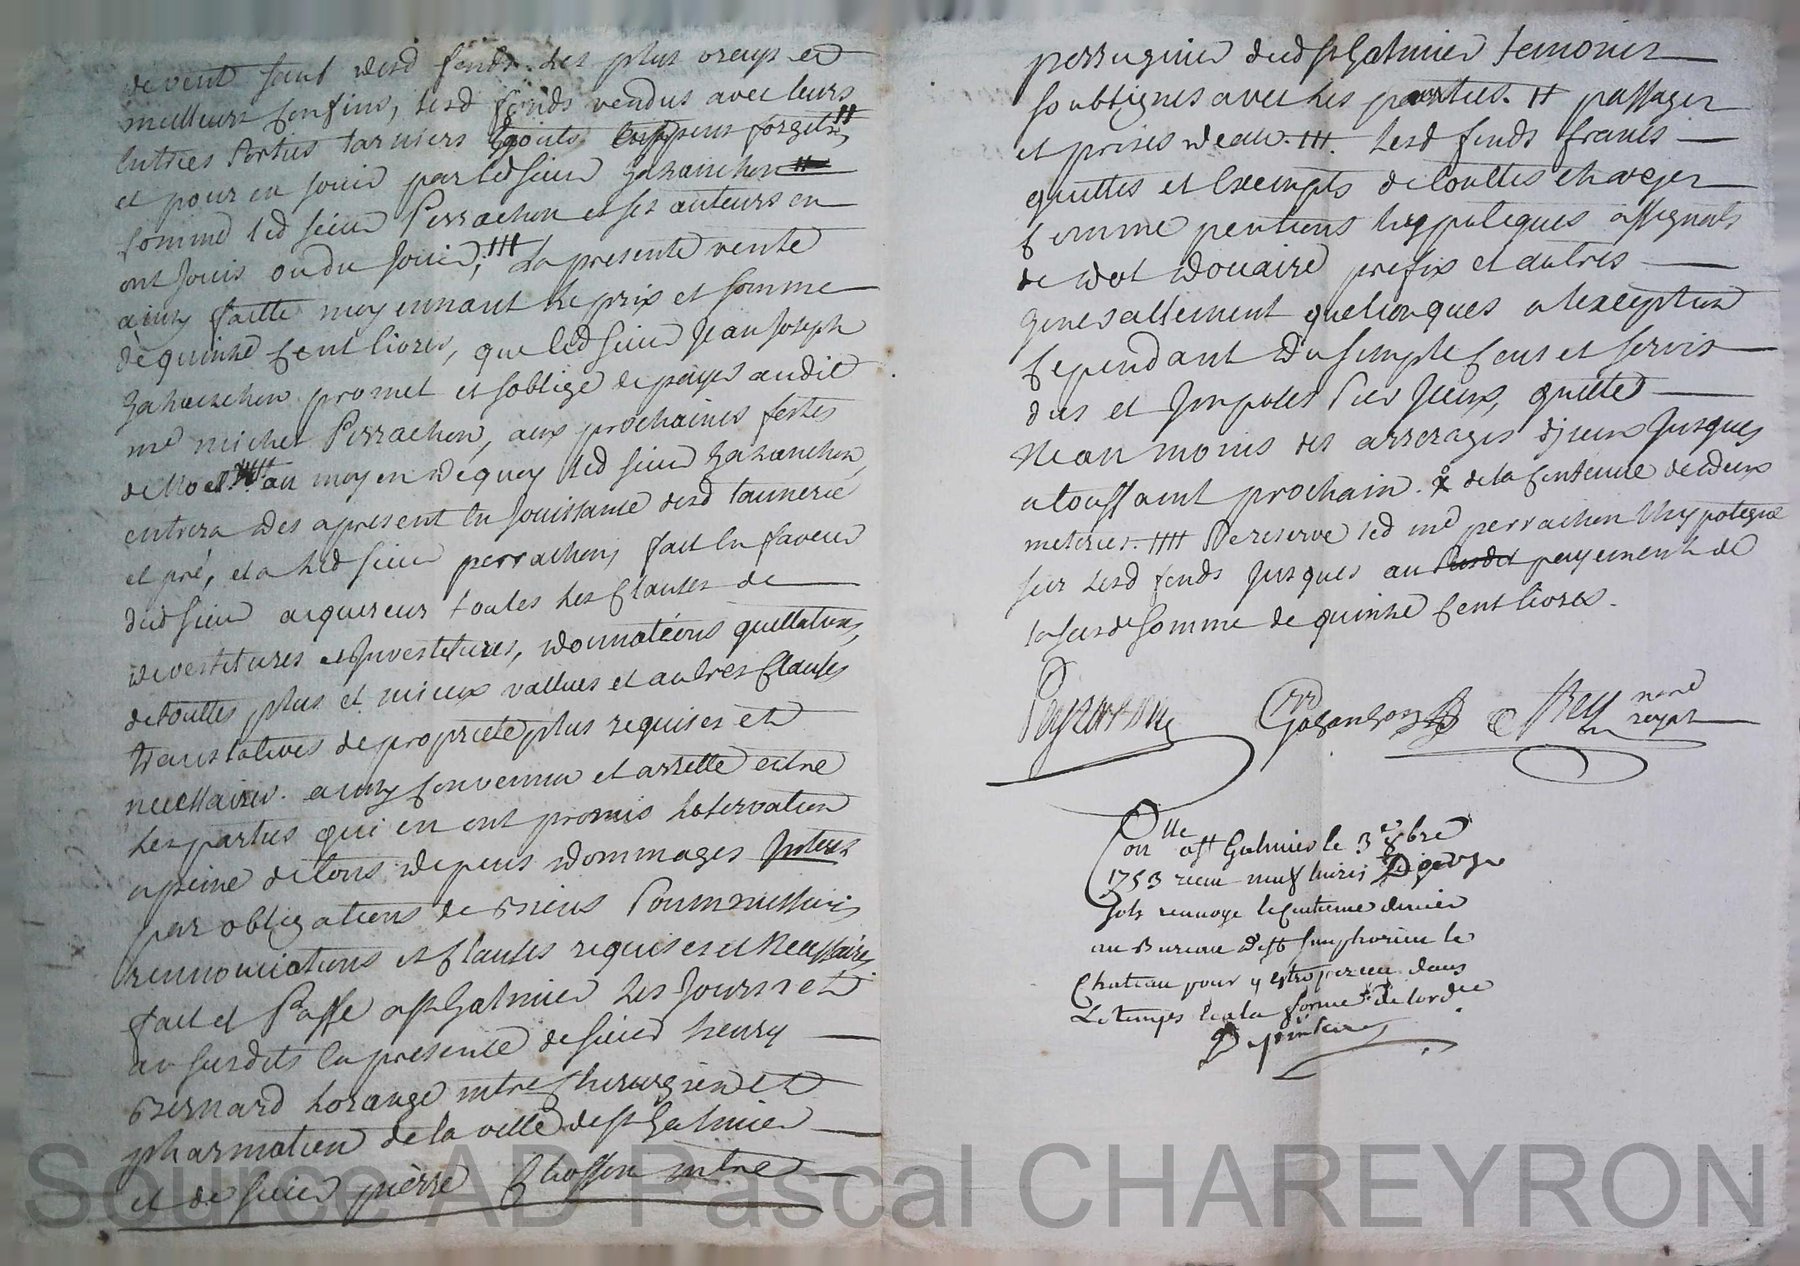 de vent sauf desd fonds les plus vrays et
meilleurs confins, lesd fonds vendus avec leurs
entrées sorties
et pour en jouir par led sieur Gahanchon
comme led sieur Perrachon et ses auteurs en
ont jouis ou du jouir, ††† La presente vente
ainsy faitte moyennant le prix et somme
de quinze cent livres, que led sieur Jean Joseph
promet et soblige de payer audit
me michel Perrachon, aux prochaines festes
de Noel †††† au moyen dequoy led sieur
entrera des apresent en jouissance desd tannerie
et pré, et a led sieur perrachon, fait en faveur
dud sieur acquereur toutes les clauses de
devestitures et Investitures, donnations quittations,
de touttes plus et mieux vallues et autres clauses
translatives de proprieté plus requises et
necessaires. ainsy convenu et arresté entre
les parties qui en ont promis lobservation
a peine de tous depens dommages Interets
par obligations de biens soummissions
rennonciations et clauses requises et necessaires
fait et Passé a st Galmier les Jours et
an susdits en presence de sieur henry
Bernard Lorange mtre chirurgien et
pharmatien de la ville de st Galmier
et de sieur pierre Chosson mtre
perruquier dud st Galmier temoins
soubsignes avec les parties. †† passages
et prises deau. ††† Lesd fonds francs
quittes et exempts de touttes charges
comme pentions hyppoteques assignats
de dot douaire prefix et autres
generallement quelconques a lexception
cependant du simple cens et servis
dus et Imposés sur Iceux, quitte
neanmoins des arrerages diceux Jusques
a toussaint prochain. de la contenue de deux
meterées. †††† Se reserve led me perrachon lhypoteque
sur lesd fonds Jusques au payement de
la susde somme de quinze cent livres.
Rey nore
royal
Conlle a st Galmier le 3e 8bre
1753 receu neuf livres
sols renvoyé le centieme denier
au Bureau de st Simphorien le
Chateau pour y estre perceu dans
Le temps et a la forme de lordce